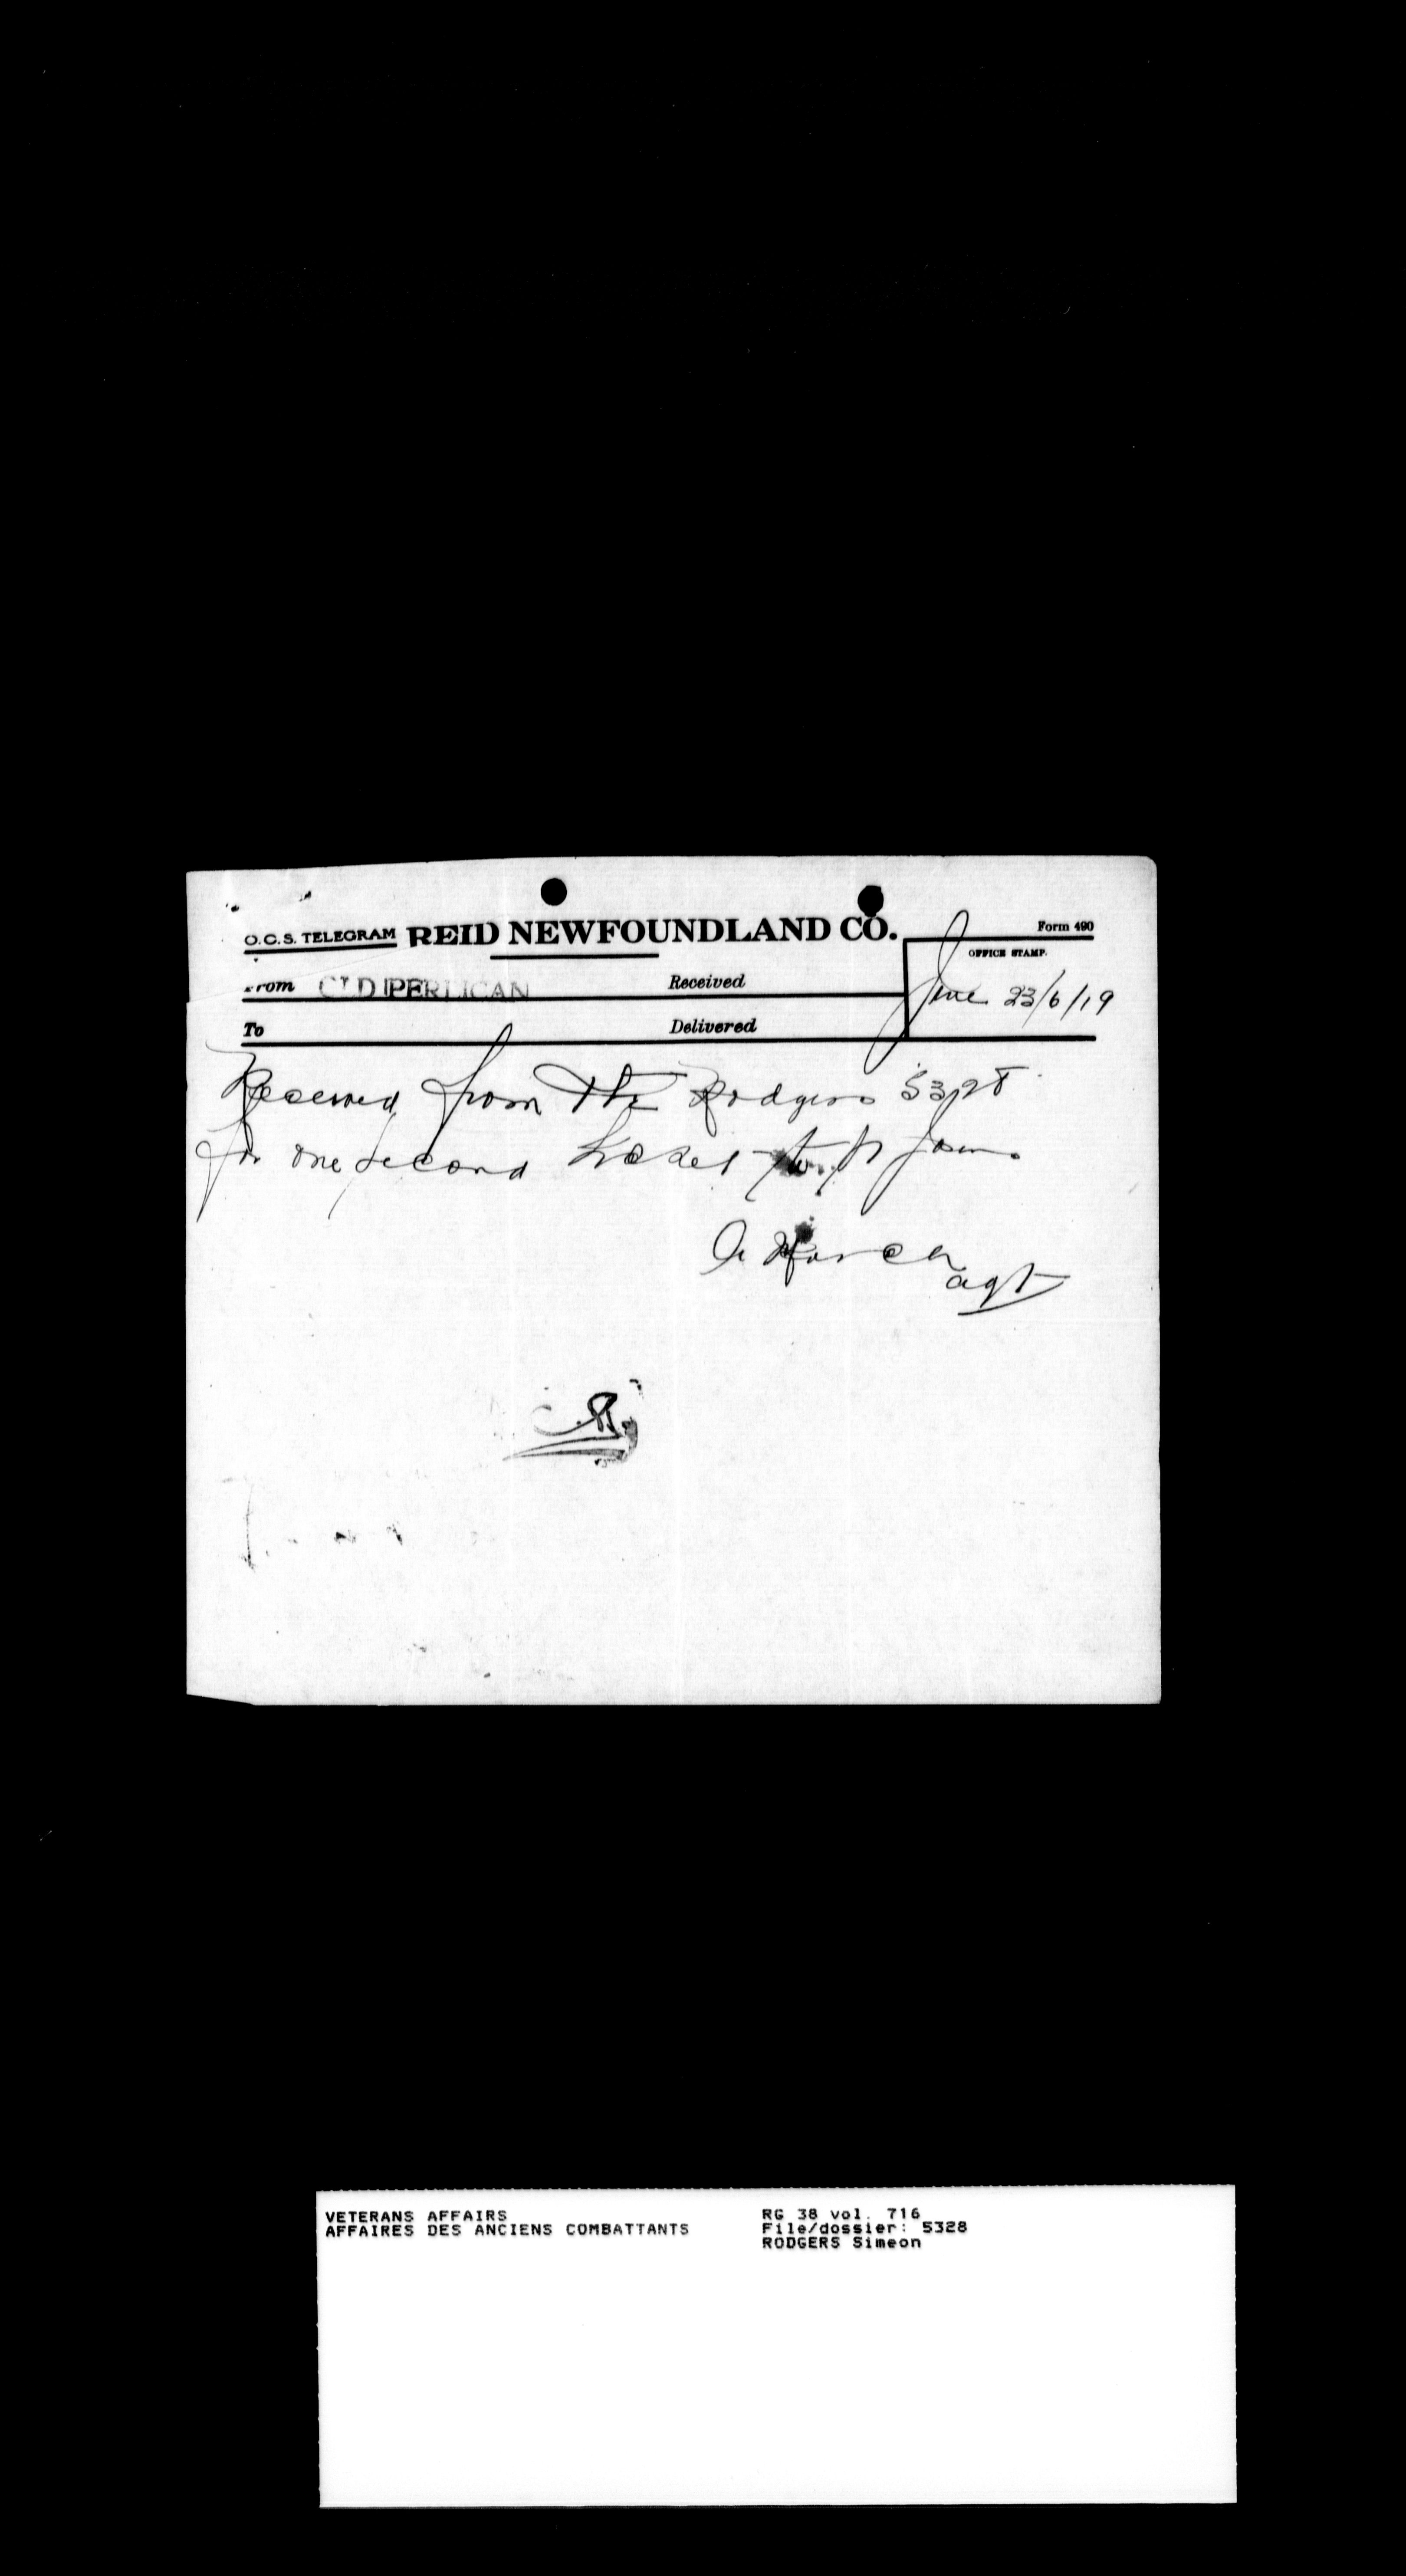 O.C.S. TELEGRAM REID NEWFOUNDLAND CO. Form 490
OFFICE STAMP.
From OLD PERLICAN Received
June 23/6/19
To Delivered
Received from Rodgers
for one second to St Johns
A March
agt
VETERANS AFFAIRS
AFFAIRES DES ANCIENS COMBATTANTS
RG 38 vol. 716
File/dossier: 5328
RODGERS Simeon